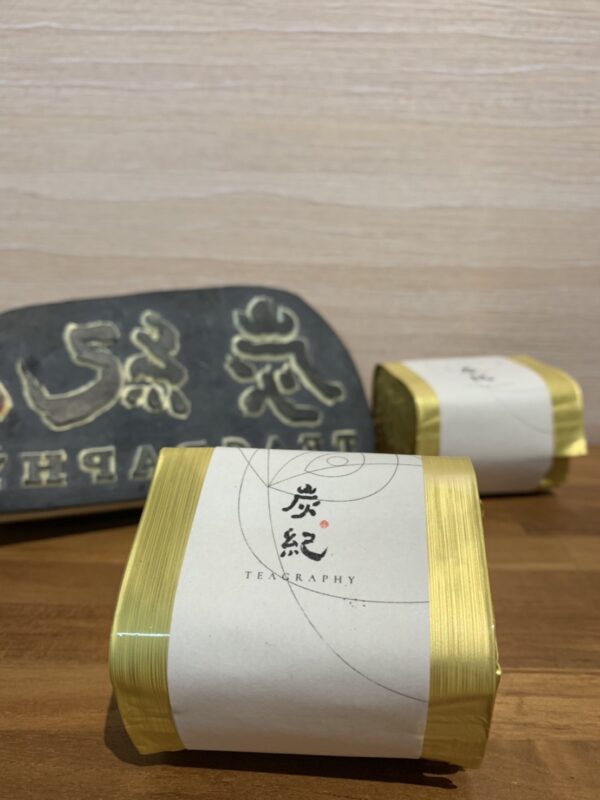 炭紀
TEAGRAPHY
炭紀
炭
紀
TEAGRAPHY